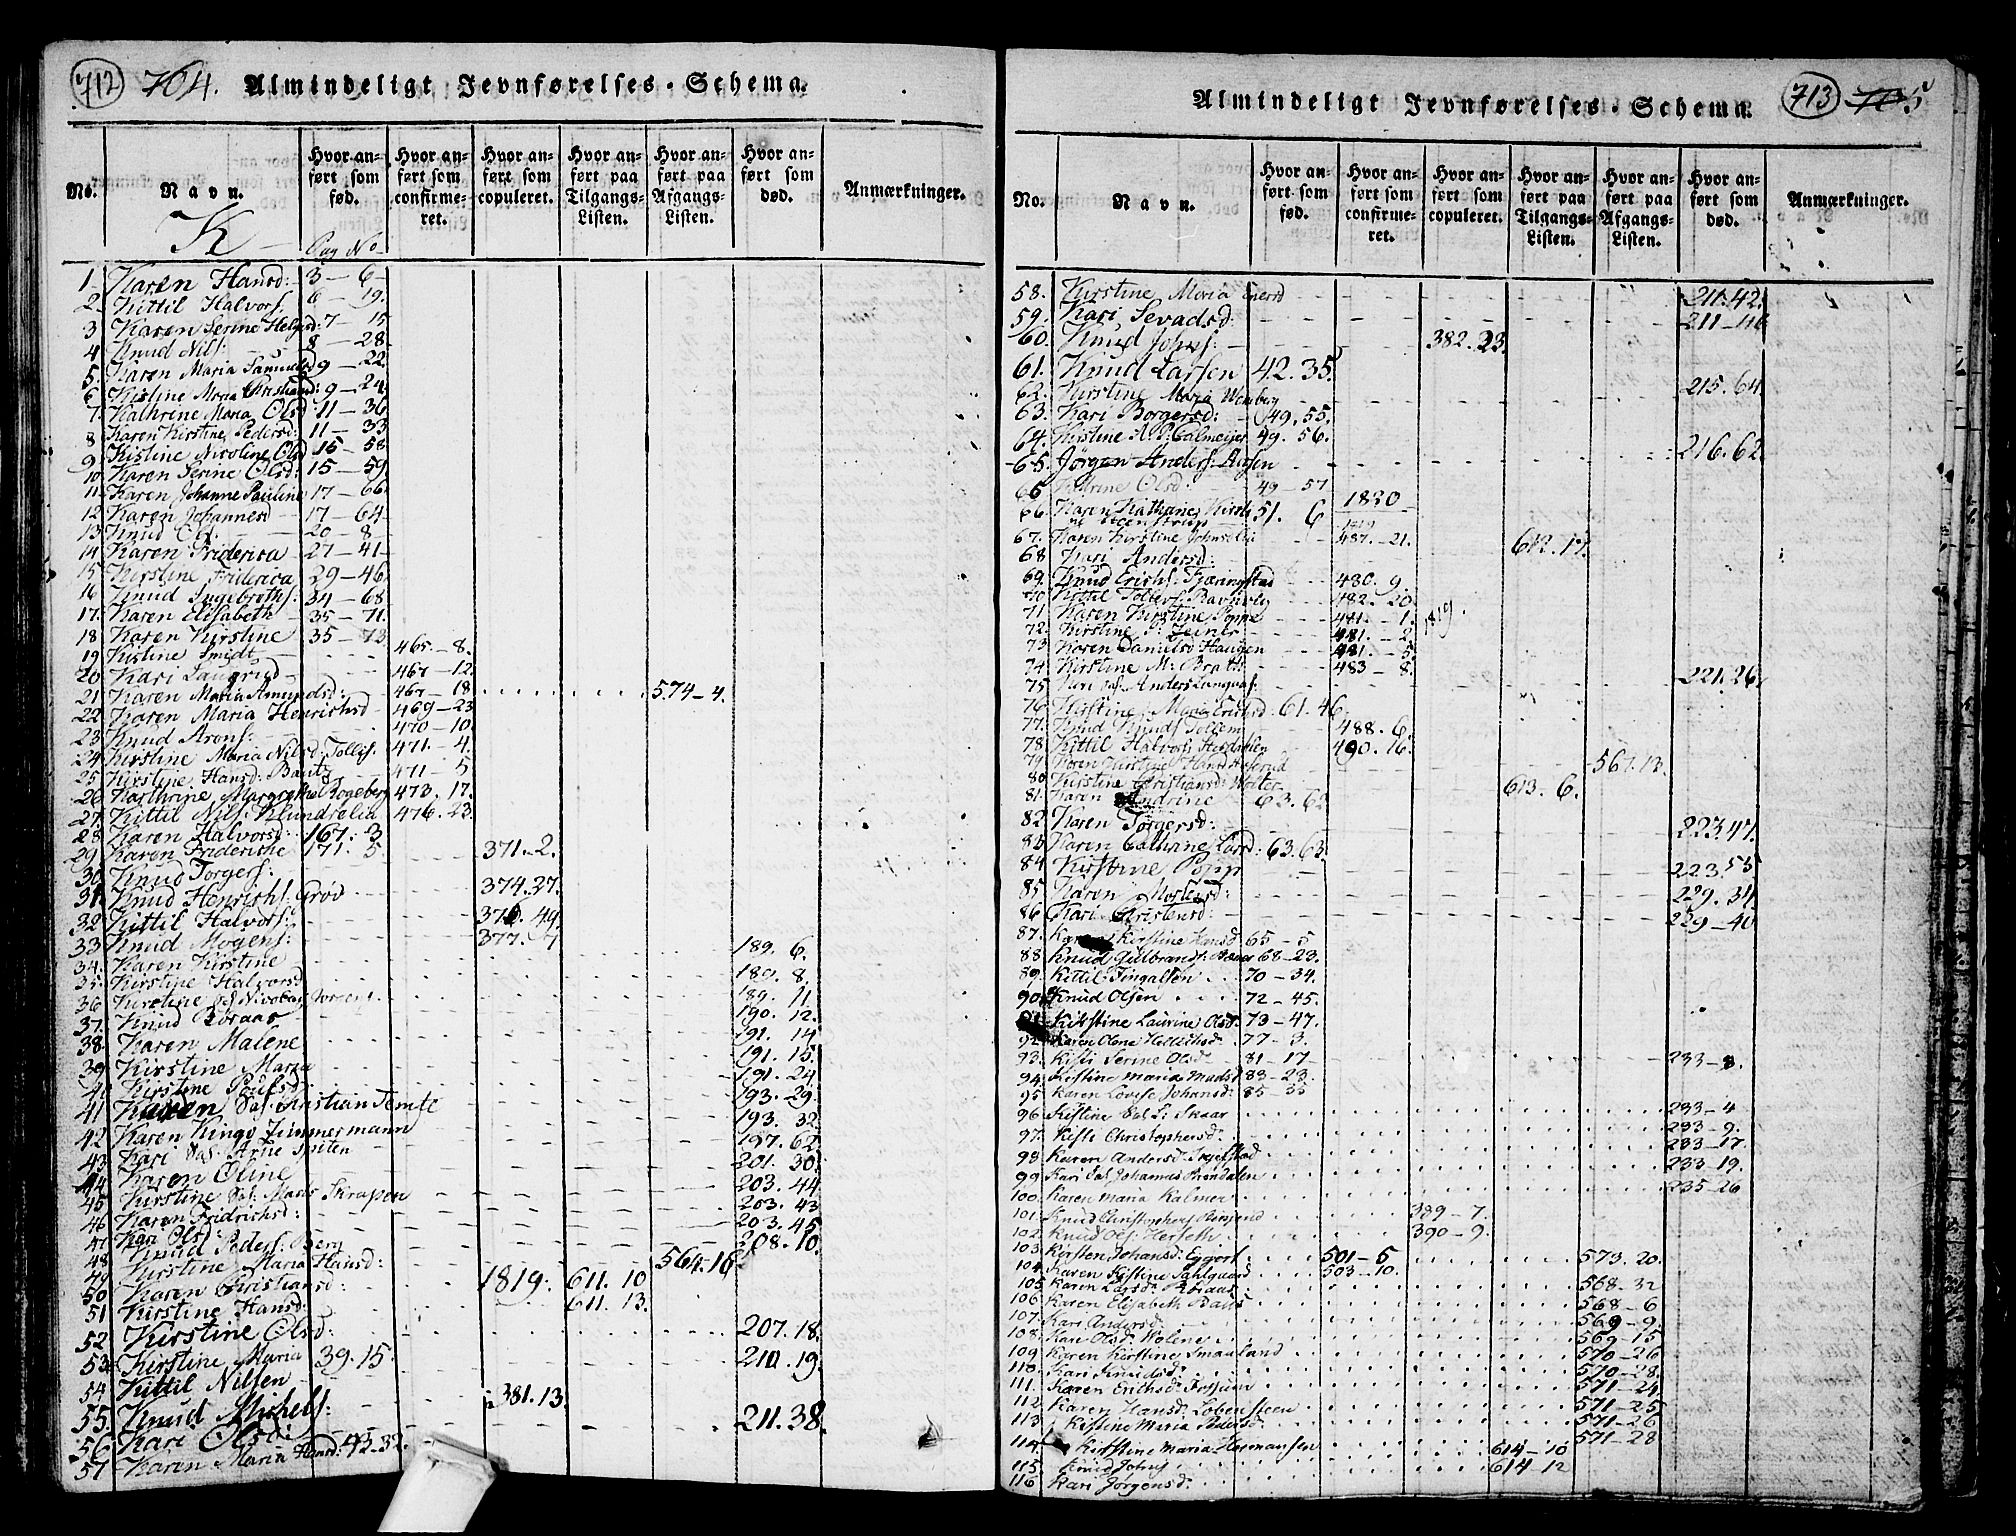 712 704. Almindeligt Jevnførelses-Schema.
No. Navn. Hvor anført som fød. Hvor anført som confirmeret. Hvor anført som copuleret. Hvor anført paa Tilgangs-Listen. Hvor anført paa Afgangs-Listen. Hvor anført som død. Anmærkninger.
K
Pag No
1. Karen Hansd: 3 — 6
2. Kittil Halvors: 6 — 19.
3 Karen Serine Helgesd: 7 — 15
4 Knud Nils: 8 — 28
5. Karen Maria Samuelsd 9 — 22
6 Kistine Maria Christiansd: 9 — 24
7. Kathrine Maria Olsd 11 — 36
8 Karen Kirstine Pedersd: 11 — 33
9 Kistine Nicoline Olsd 15 — 58
10 Karen Serine Olsd: 15 — 59
11 Karen Johanne Pauline 17 — 66
12 Karen Johannesd 17 — 64
13 Knud Ols: 20 — 8
14 Karen Friderica 27 — 41
15 Kirstine Friderica 29 — 46
16 Knud Ingebreths: 34 — 68
17. Karen Elisabeth 35 — 71.
18 Karen Kirstine 35 — 73
19 Kistine Smidt 465 — 8.
20 Kari Laugrid 467 — 12
21 Karen Maria Amundsd: 467 — 18 574 — 4.
22. Karen Maria Henrichsd 469 — 23
23 Knud Arons: 470 — 10
24 Kirstine Maria Nilsd: Tollefs. 471. — 4.
25 Kirstine Hansd: Bautz 471 — 5
26 Karthrine Margrethe Bogeberg 473. 17.
27 Kittil Nils: Klundrelia 476. 23.
28 Karen Halvorsd: 167. 3
29. Karen Frideriche 171. 5. 371. 2.
30 Knud Torgers:
31. Knud Henrichs: Grøv 374. 27.
32 Kittil Halvors: 376. 49.
33 Knud Mogens: 377. 7
34. Karen Kirstine 189. 6.
35. Kirstine Halvorsd 189. 8.
36 Kirstine Nicolay Jorgens. 189. 11
37. Knud Boraas 190. 12.
38. Karen Malene 191. 14
39 Kirstine Maria 191. 15.
40 Kirstine Poulsd: 191. 24
41 Karen Das: Kristian Temte 193. 29.
42 Karen Kingo Zimmermann 193. 32.
43 Kari Das: Arne Spiten 197. 62
44 Karen Oline 201. 30.
45 Kirstine Das: Mads Skrapen 203. 44
46 Karen Fridrichsd: 203. 43
47 Kari Olsd: 203. 45
48 Knud Peders: Berg 208. 10.
49 Kirstine Maria Hansd: 564. 16
50 Karen Christiansd: 1819: 611. 10
51 Kirstine Hansd: 611. 13.
52 Kirstine Olsd: 207. 18.
53 Kirstine Maria 39. 15. 210. 19.
54 Kittil Nilsen
55. Knud Michels: 381. 13.
56 Kari Olsd: 211. 38.
57 Karen Maria Hansd: 43—32.
Almindeligt Jevnførelses-Schema. 713 705
No. Navn. Hvor anført som fød. Hvor anført som confirmeret. Hvor anført som copuleret. Hvor anført paa Tilgangs-Listen. Hvor anført paa Afgangs-Listen. Hvor anført som død. Anmærkninger.
58. Kirstine Maria Enersd 211. 42.
59. Kari Sevadsd: 211 — 46
60. Knud Johns: 382. 23.
61. Knud Larsen 42. 35.
62. Kirstine Maria Wenberg 215. 64.
63. Kari Borgersd: 49. 55.
64. Kirstine A. P. Calmeijer 49. 56. 216. 62.
65. Jørgen Anders: Aasen
65 Katrine Olsd: 49 — 57
66. Karen Kathrine Kirstine Steenstrup 51. 6 1820
67. Karen Kirstine Johnsdlia 1819 487. — 21.
68 Kari Andersd: 612. 17.
69. Knud Erichs: Fjæringstad 480. 9
70 Kittil Tollefs: Ravnvlig 482. 20
71 Karen Kirstine Poppe 481. — 1. 1819.
72. Kirstine P: Zeiner 481. — 2
73. Karen Danielsd Haugen 481 — 5
74 Kirstine M: Brath 483 — 8.
75 Kari Das: Anders Langaas: 221. 26.
76 Kirstine Maria Erichsd: 61. 46.
77. Knud Knuds Follem 488. 6.
78. Kittil Halvors Heisdahlen 490. 16.
79 Karen Kirstine Hansd Aaserud 567. 13.
80 Kirstine Christiansd: Wolter 613. 6.
81. Karen Andrine 63. 62
82. Karen Torgersd: 223 47.
83. Karen Cathrine Larsd: 63. 63.
84. Kirstine Popp 223 55
85. Karen Mortensd: 229. 31.
86 Kari Christensd: 229 — 40
87. Karen Kirstine Hansd 65 — 5
88 Knud Gulbrands: Aaas 68 — 23.
89. Kittil Tingalsen 70 — 34.
90 Knud Olsen 72 — 45.
91 Kirstine Laurine Olsd: 73 — 47.
92. Karen Olene Hellichsd 77 — 3.
93. Kisti Serine Olsd 81 — 17 233 — 8.
94. Kistine Maria Madsd 83 — 23.
95 Karen Lovise Johansd: 85 — 35
96 Kistine Das L: Skaar 233 — 4
97. Kisti Christophersd: 233 — 9.
98 Karen Andersd: 233 — 17.
99 Kari Das Johannes Brendalen 233 — 19.
100. Karen Maria Kalmer 235 — 26
101. Knud Christophers 389 — 7.
102. Knud Ols: Herseth 390 — 9.
103. Kirsten Johansd: Eggert 501 — 5 573. 20.
104. Karen Kistine Dahlgaard 503 — 10.
105. Karen Larsd: Boraas 568 — 32
106 Karen Elisabeth Baus 568 — 6
107. Kari Andersd: 569 — 9.
108. Kari Olsd: Moline 569 — 15
109. Karen Kirstine Smaaland 570 — 26
110. Kari Knudsd: 570 — 28.
111. Karen Erichsd: Fossum 571 — 24
112 Karen Hansd: Lobensteen 571 — 25
113 Kirstine Maria Pedersd: 571 — 26
114. Kirstine Maria Hermansen 614 — 10 571 — 28
115. Knud Johns 614 — 12
116 Kari Jørgensd: